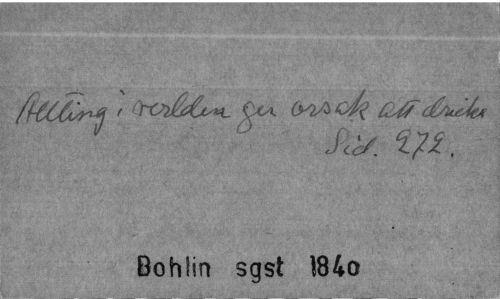 Allting i verlden ger orsak att dricka
Sid. 272.
Bohlin sgst 1840